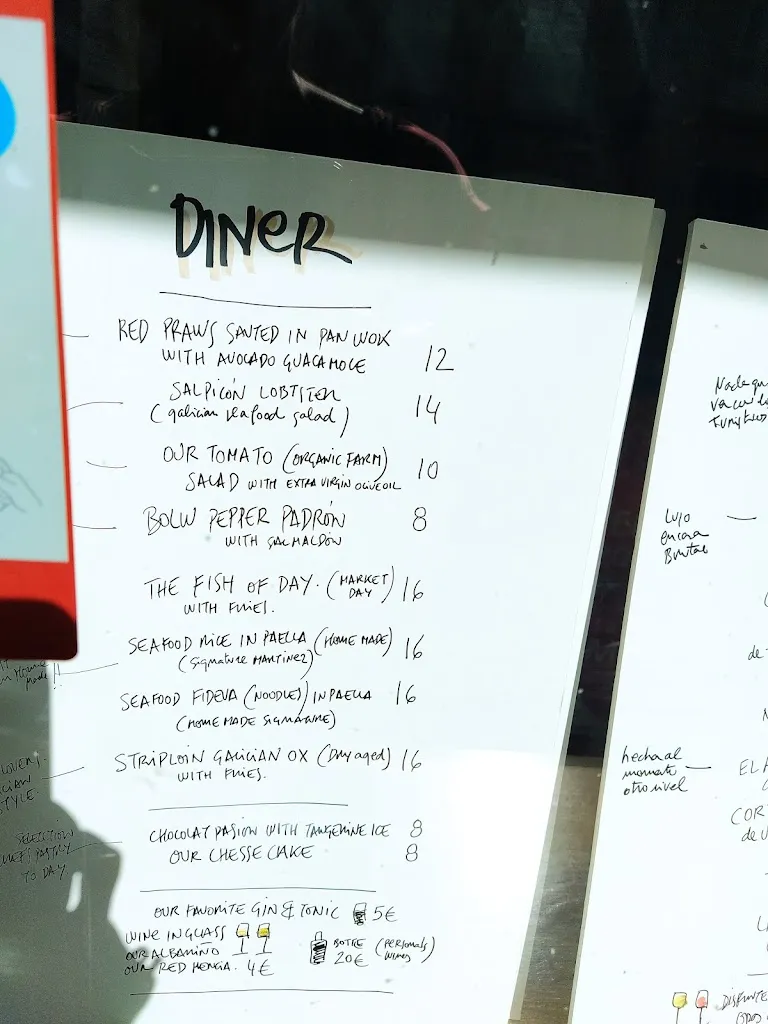 DINER
RED PRAWS SAUTED IN PAN WOK
WITH AVOCADO GUACAMOLE 12
SALPICÓN LOBTSTER
(galician seafood salad) 14
OUR TOMATO (ORGANIC FARM)
SALAD WITH EXTRA VIRGIN OLIVE OIL 10
BOLW PEPPER PADRÓN 8
WITH SALMALDÓN
THE FISH OF DAY. (MARKET DAY) 16
WITH FRIES.
SEAFOOD RICE IN PAELLA (HOME MADE) 16
(Signature MARTINEZ)
SEAFOOD FIDEUA (NOODLES) IN PAELLA 16
(HOME MADE SIGNATURE)
STRIPLOIN GALICIAN OX (Dry aged) 16
WITH FRIES.
CHOCOLAT PASION WITH TANGERINE ICE 8
OUR CHESSE CAKE 8
OUR FAVORITE GIN & TONIC 5€
WINE IN GLASS
OUR ALBARIÑO
OUR RED MENCIA. 4€
BOTTLE
20€
(PERSONALS
WINES)
STYLE
SELECTION
TO DAY
Lujo
encara
Brutal
hecha al
momento
otro nivel
de
EL A
COR
de V
DISFRUTE